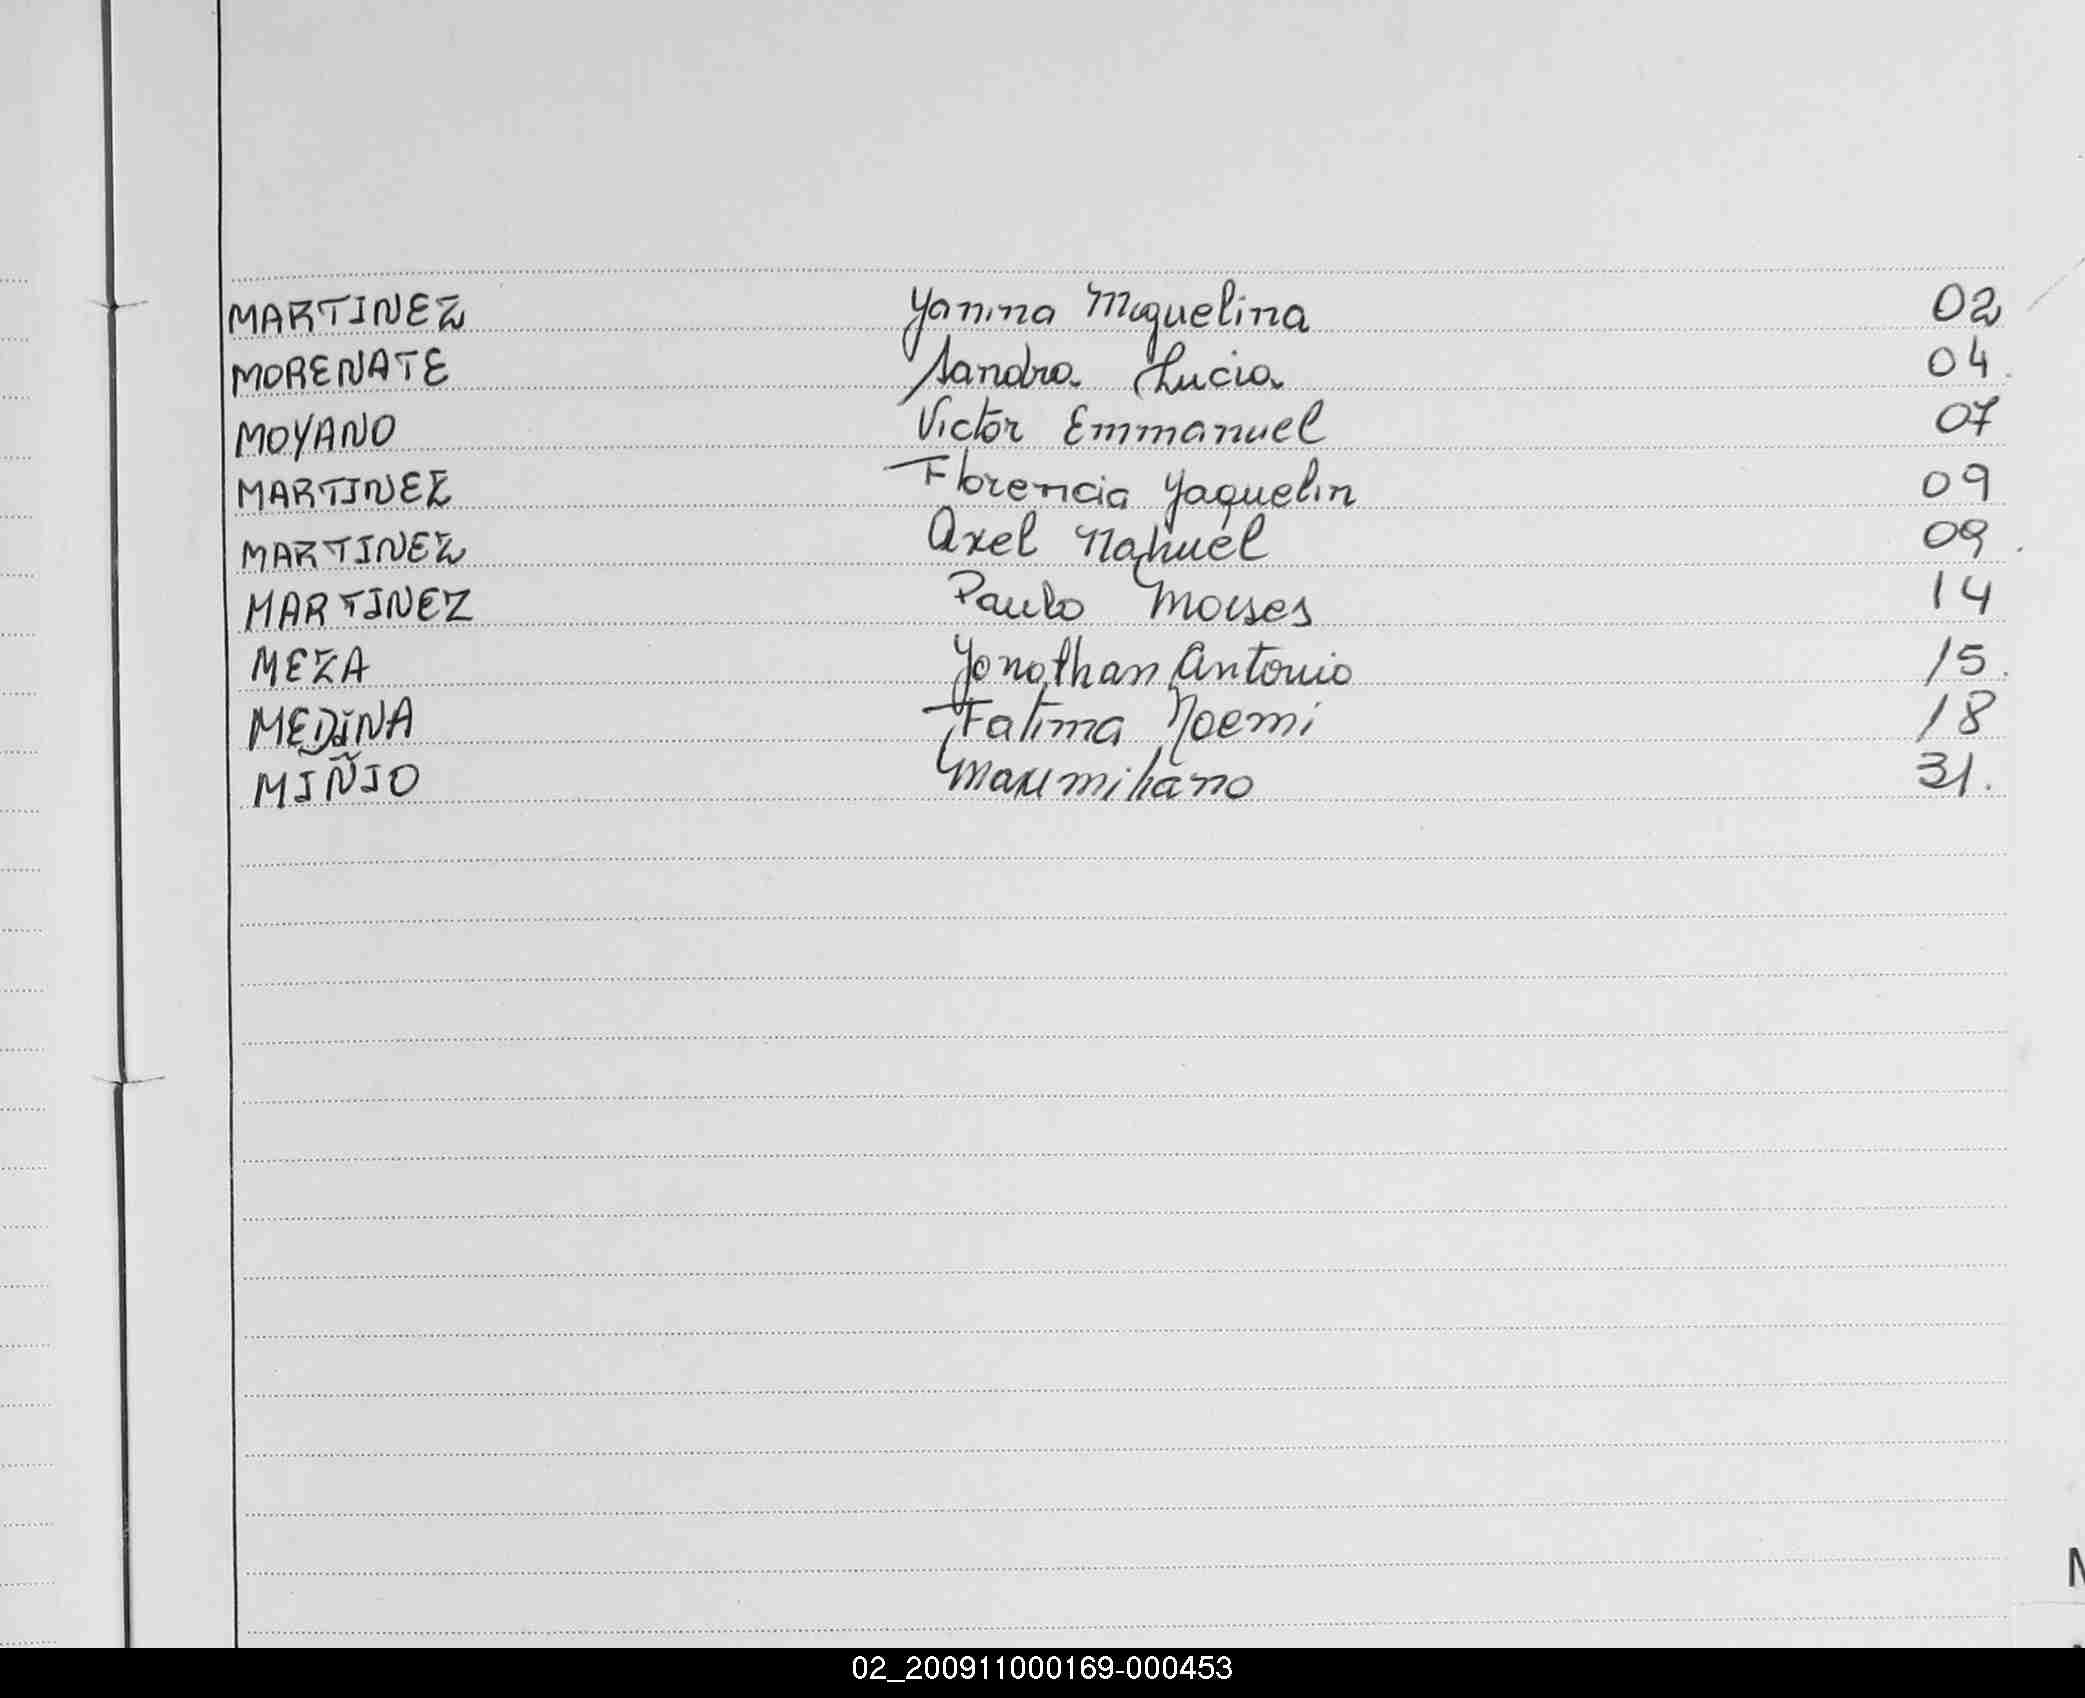 MARTINEZ Yanina Miquelina 02
MORENATE Sandra Lucia 04.
MOYANO Victor Emmanuel 07
MARTINEZ Florencia Yaquelin 09
MARTINEZ Axel Nahuel 09.
MARTINEZ Paulo Moises 14
MEZA Yonathan Antonio 15.
MEDINA Fatima Noemi 18
MIÑIO Maximiliano 31.
02_200911000169-000453